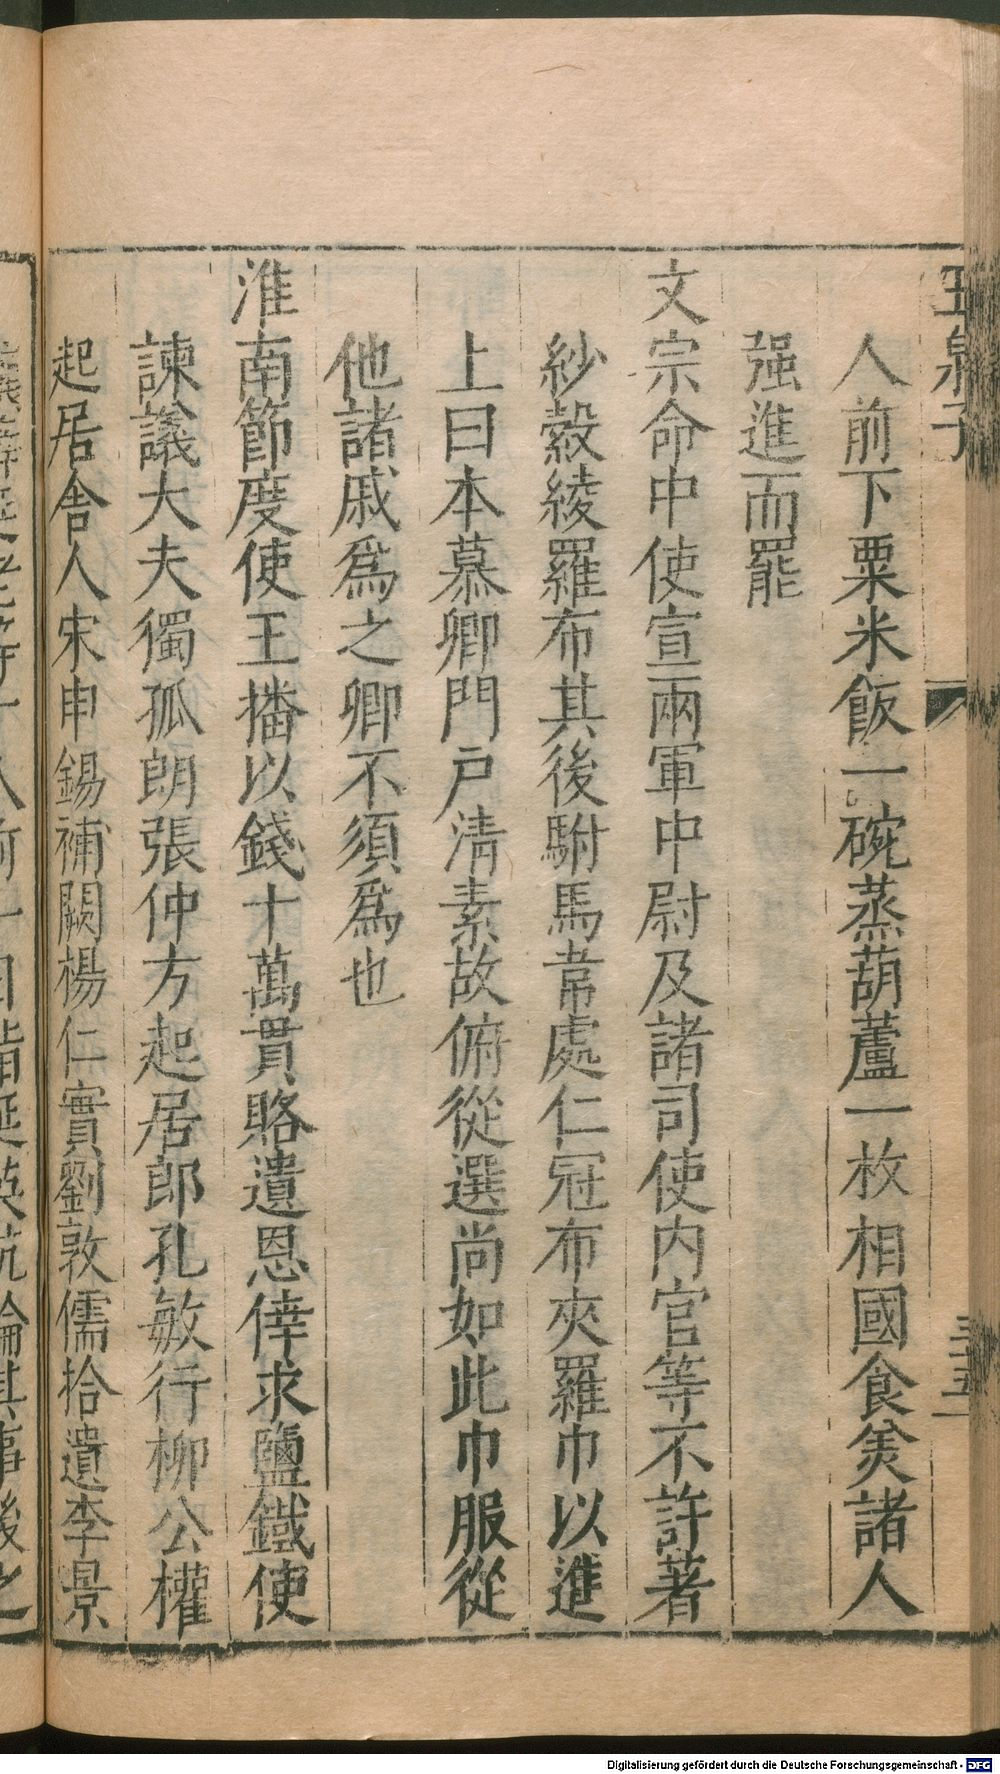 玉泉子
三五
人前下粟米飯一碗蒸葫蘆一枚相國食美諸人
强進而罷
文宗命中使宣兩軍中尉及諸司使内官等不許著
紗縠綾羅布其後駙馬韋處仁冠布夾羅巾以進
上曰本慕卿門戶清素故俯從選尚如此巾服從
他諸戚爲之卿不須爲也
淮南節度使王播以錢十萬貫賂遺恩倖求鹽鐵使
諫議大夫獨孤朗張仲方起居郎孔敏行柳公權
起居舍人宋申錫補闕楊仁實劉敦儒拾遺李景
Digitalisierung gefördert durch die Deutsche Forschungsgemeinschaft - DFG